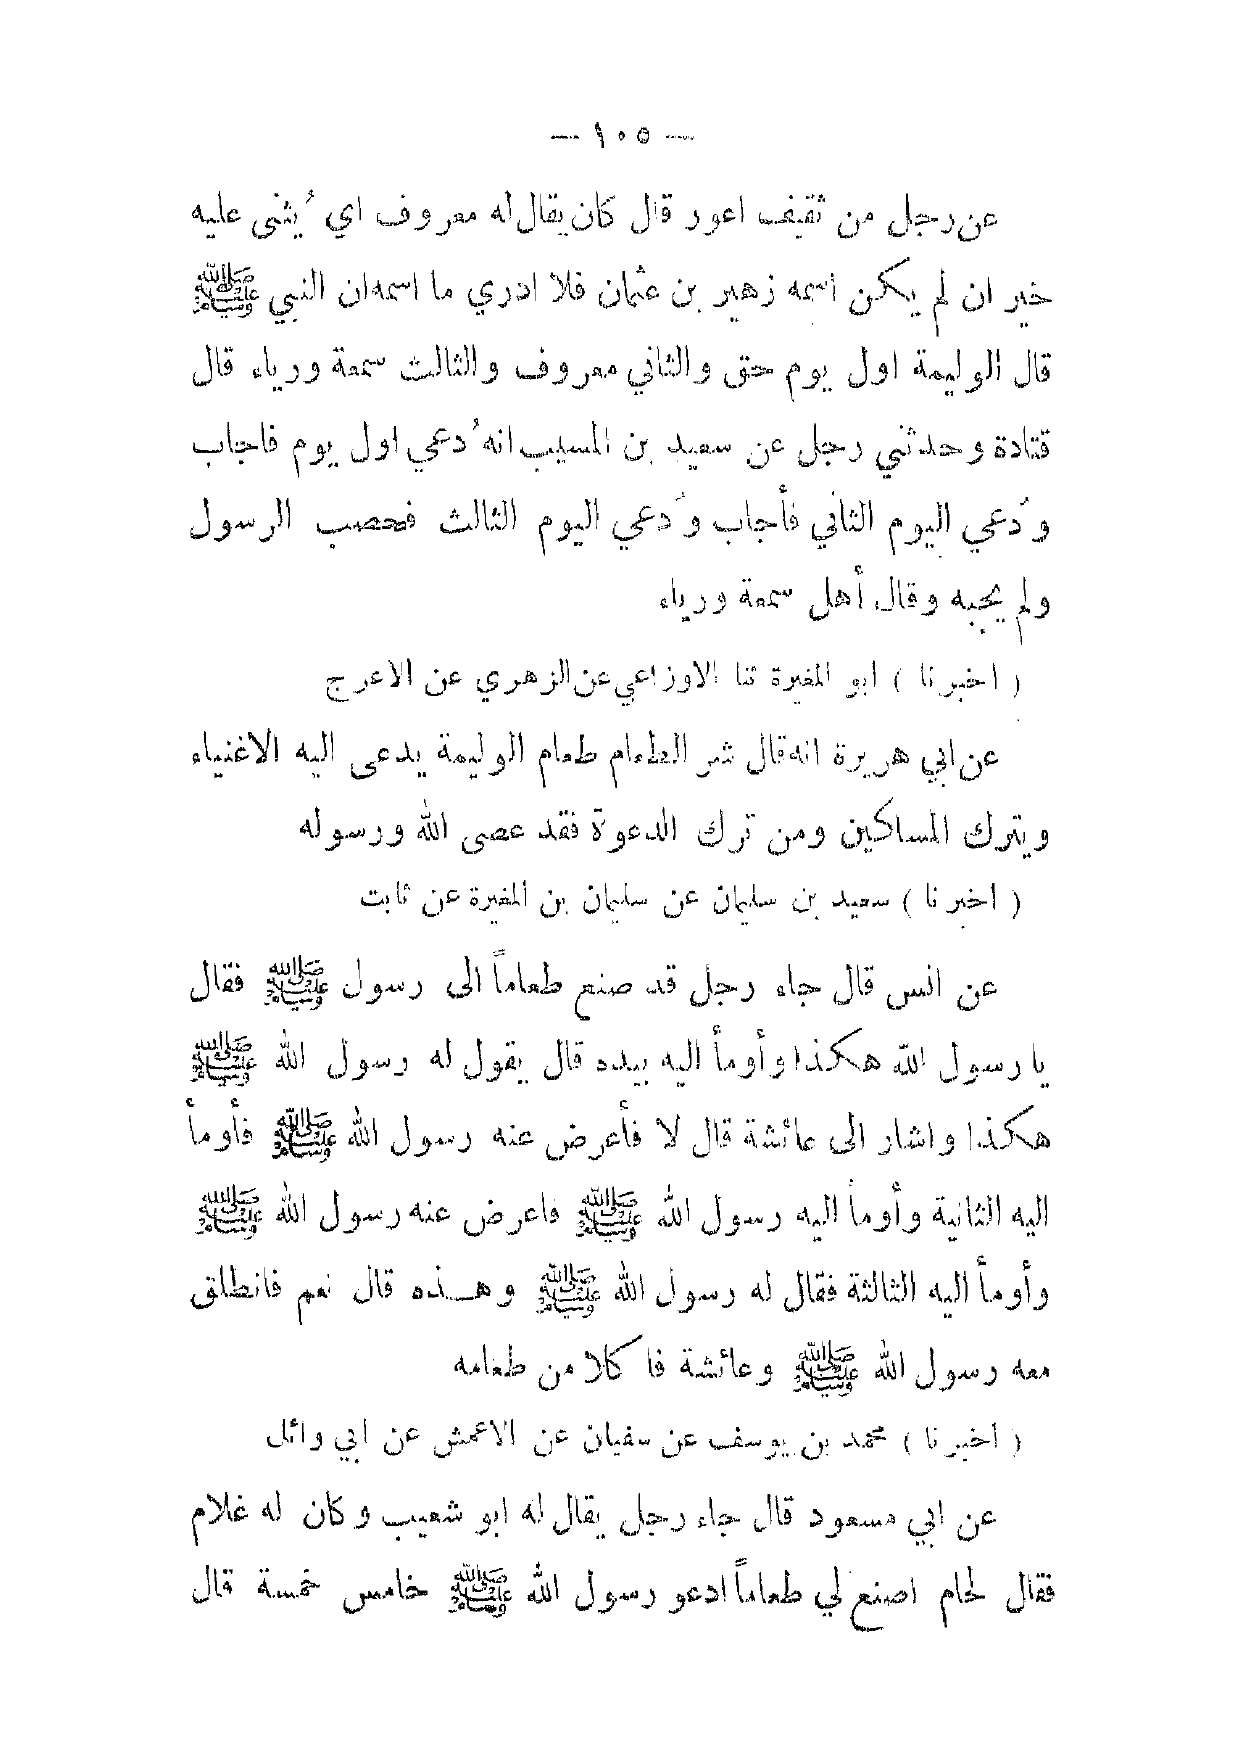 — ١٠٥ —
عن رجل من ثقيف اعور قال كان يقال له معروف اي يُثنى عليه
خير ان لم يكن اسمه زهير بن عثمان فلا ادري ما اسمه ان النبي ﷺ
قال الوليمة اول يوم حق والثاني معروف والثالث سمعة ورياء قال
قتادة وحدثني رجل عن سعيد بن المسيب انه دُعي اول يوم فاجاب
ودُعي اليوم الثاني فأجاب ودُعي اليوم الثالث فحصب الرسول
ولم يجبه وقال أهل سمعة ورياء
( اخبرنا ) ابو المغيرة ثنا الاوزاعي عن الزهري عن الاعرج
عن ابي هريرة انه قال شر الطعام طعام الوليمة يدعى اليه الاغنياء
ويترك المساكين ومن ترك الدعوة فقد عصى الله ورسوله
( اخبرنا ) سعيد بن سليمان عن سليمان بن المغيرة عن ثابت
عن انس قال جاء رجل قد صنع طعاماً الى رسول ﷺ فقال
يا رسول الله هكذا وأومأ اليه بيده قال يقول له رسول الله ﷺ
هكذا واشار الى عائشة قال لا فأعرض عنه رسول الله ﷺ فأومأ
اليه الثانية وأومأ اليه رسول الله ﷺ فاعرض عنه رسول الله ﷺ
وأومأ اليه الثالثة فقال له رسول الله ﷺ وهـذه قال نعم فانطلق
معه رسول الله ﷺ وعائشة فا كلا من طعامه
( اخبرنا ) محمد بن يوسف عن سفيان عن الاعمش عن ابي وائل
عن ابي مسعود قال جاء رجل يقال له ابو شعيب وكان له غلام
فقال لحام اصنع لي طعاماً ادعو رسول الله ﷺ خامس خمسة قال